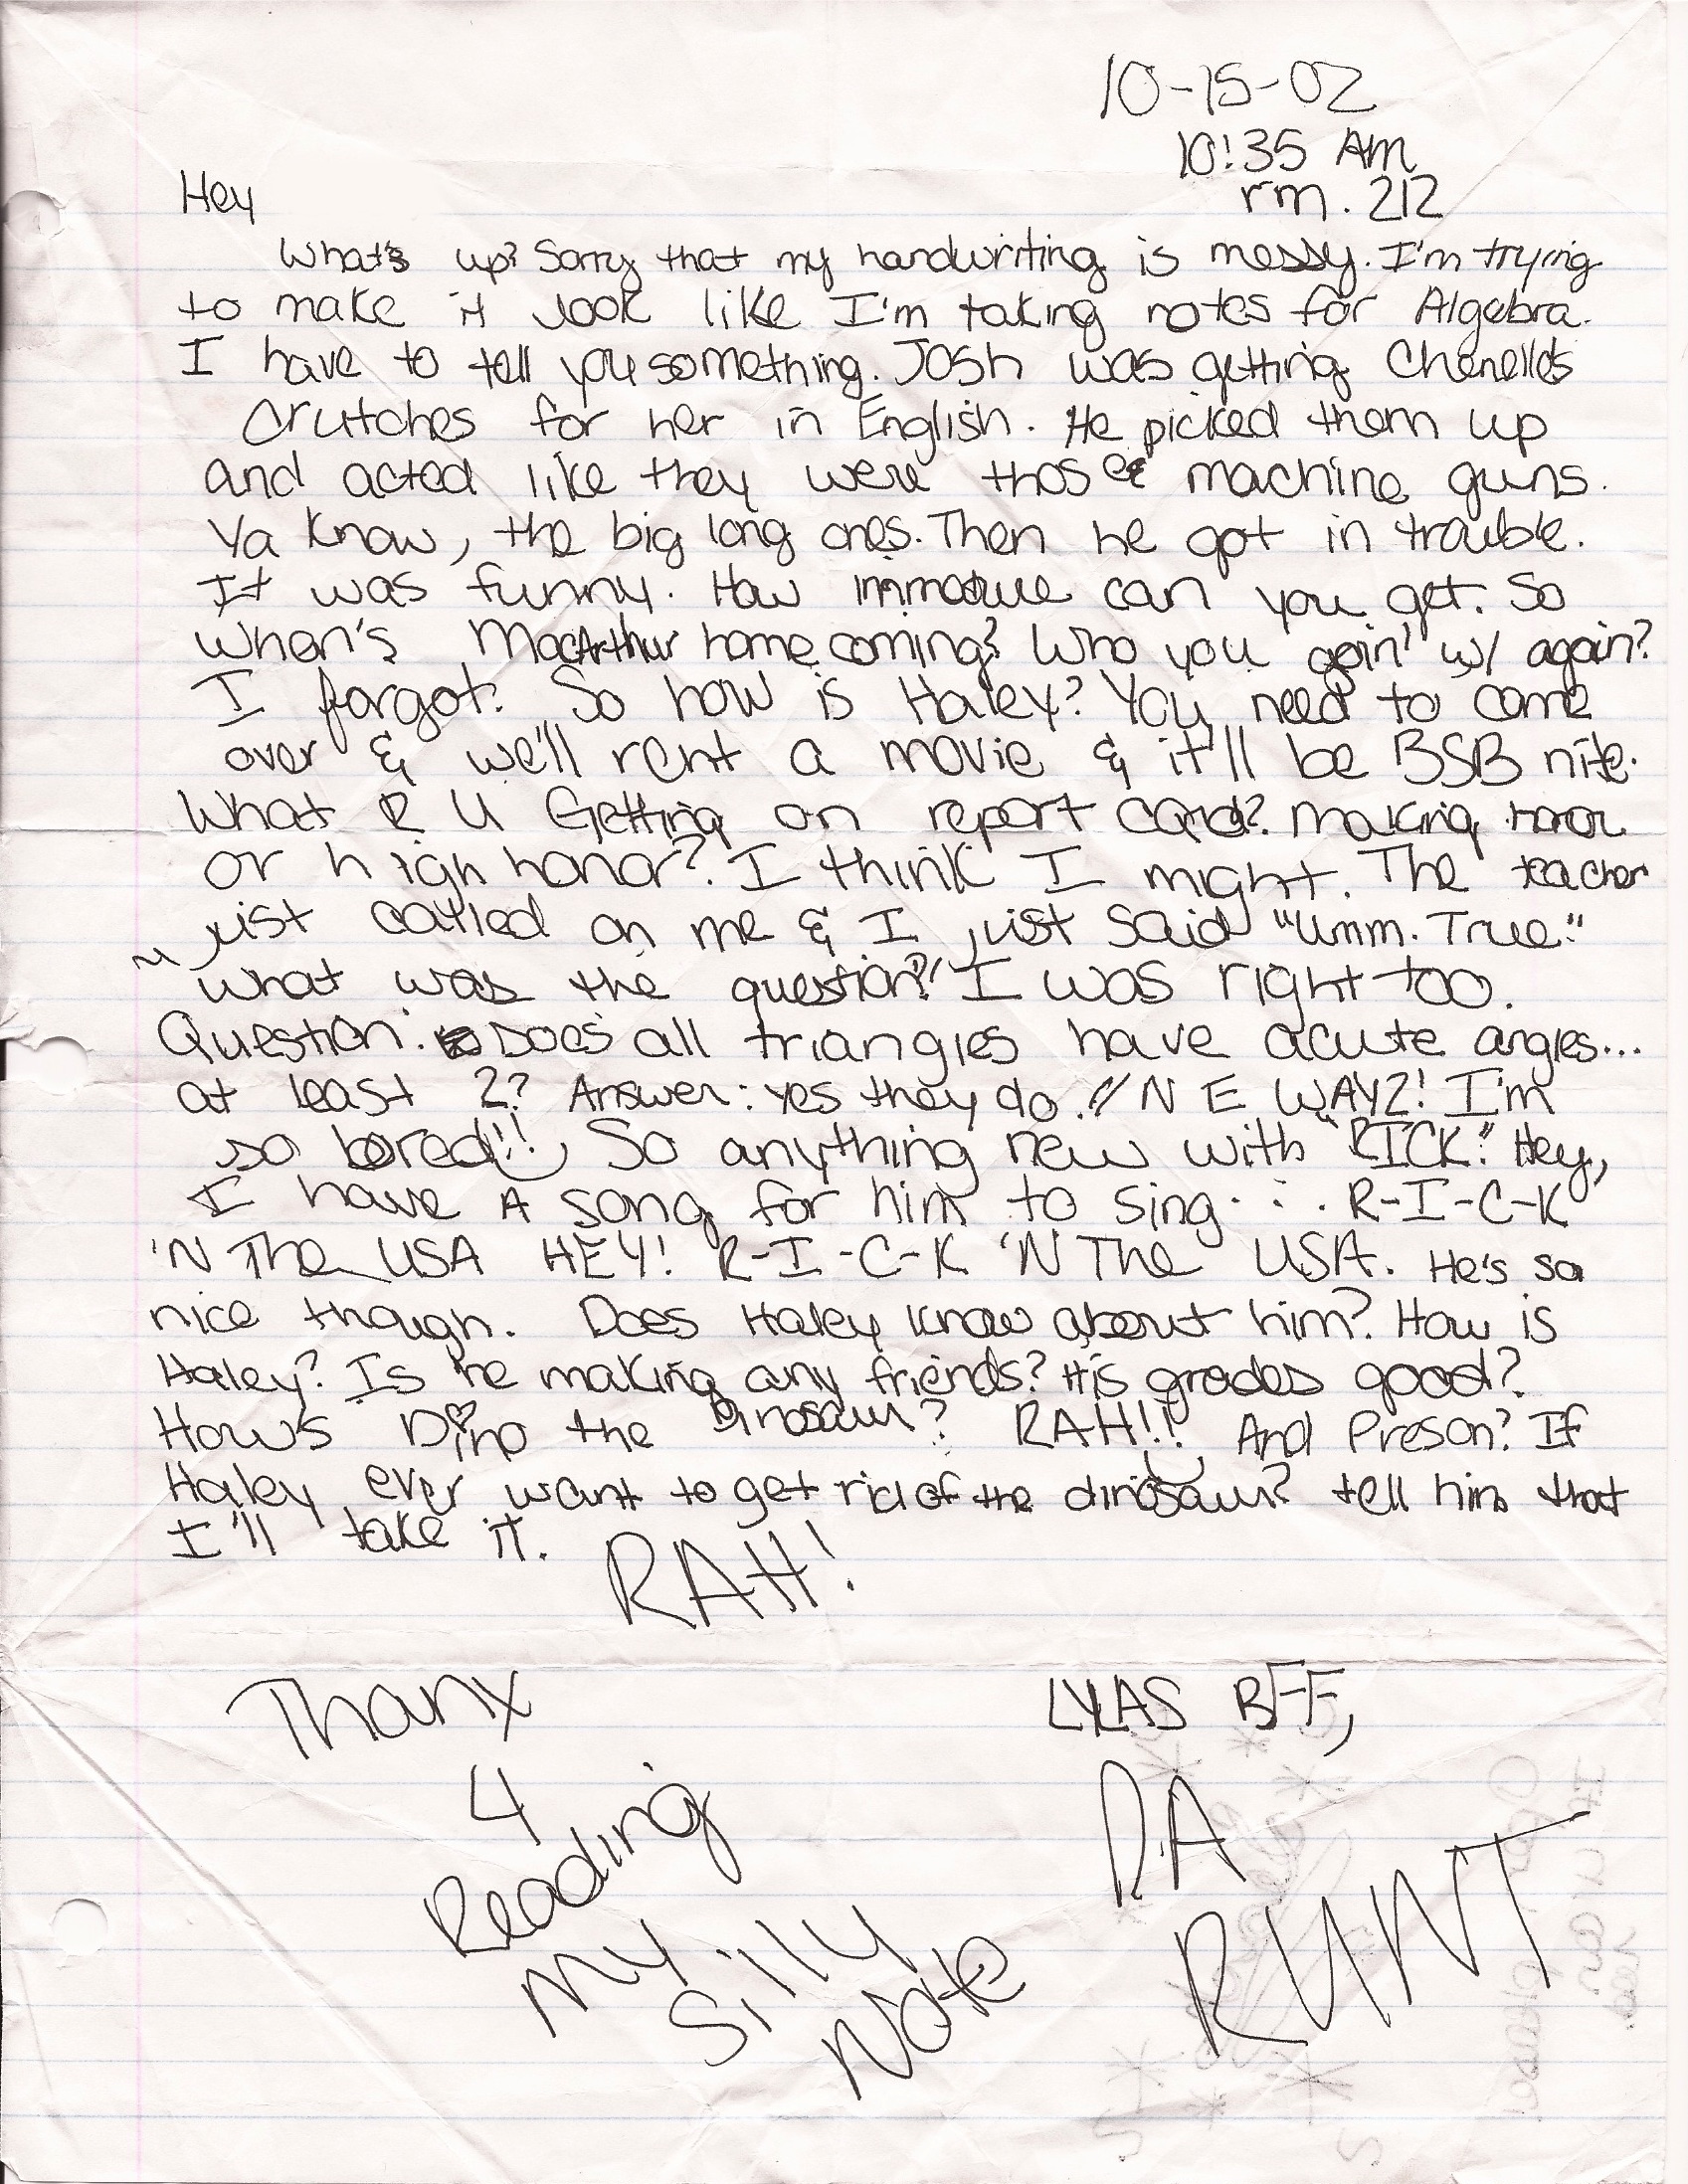 10-15-02
10:35 AM
rm. 212
Hey
What's up? Sorry that my handwriting is messy. I'm trying
to make it look like I'm taking notes for Algebra.
I have to tell you something. Josh was getting Chenelle's
crutches for her in English. He picked them up
and acted like they were those machine guns.
Ya know, the big long ones. Then he got in trouble.
It was funny. How immature can you get. So
when's MacArthur homecoming? Who you goin' w/ again?
I forgot. So how is Haley? You need to come
over & we'll rent a movie & it'll be BSB nite.
What R U Getting on report card? Making honor
or high honor? I think I might. The teacher
just called on me & I just said "Umm. True."
what was the question? I was right too.
Question: Does all triangles have acute angles...
at least 2? Answer: yes they do!! N E WAYZ! I'm
so bored!! So anything new with "RICK". Hey,
I have A song for him to sing... R-I-C-K
'N The USA HEY! R-I-C-K 'N The USA. He's so
nice though. Does Haley know about him? How is
Haley? Is he making any friends? His grades good?
How's Dino the Dinosaur? RAH!! And Preson? If
Haley ever want to get rid of the dinosaur? tell him that
I'll take it. RAH!
Thanx
4
Reading
My
Silly
Note
LYLAS BFF,
DA
RUNT